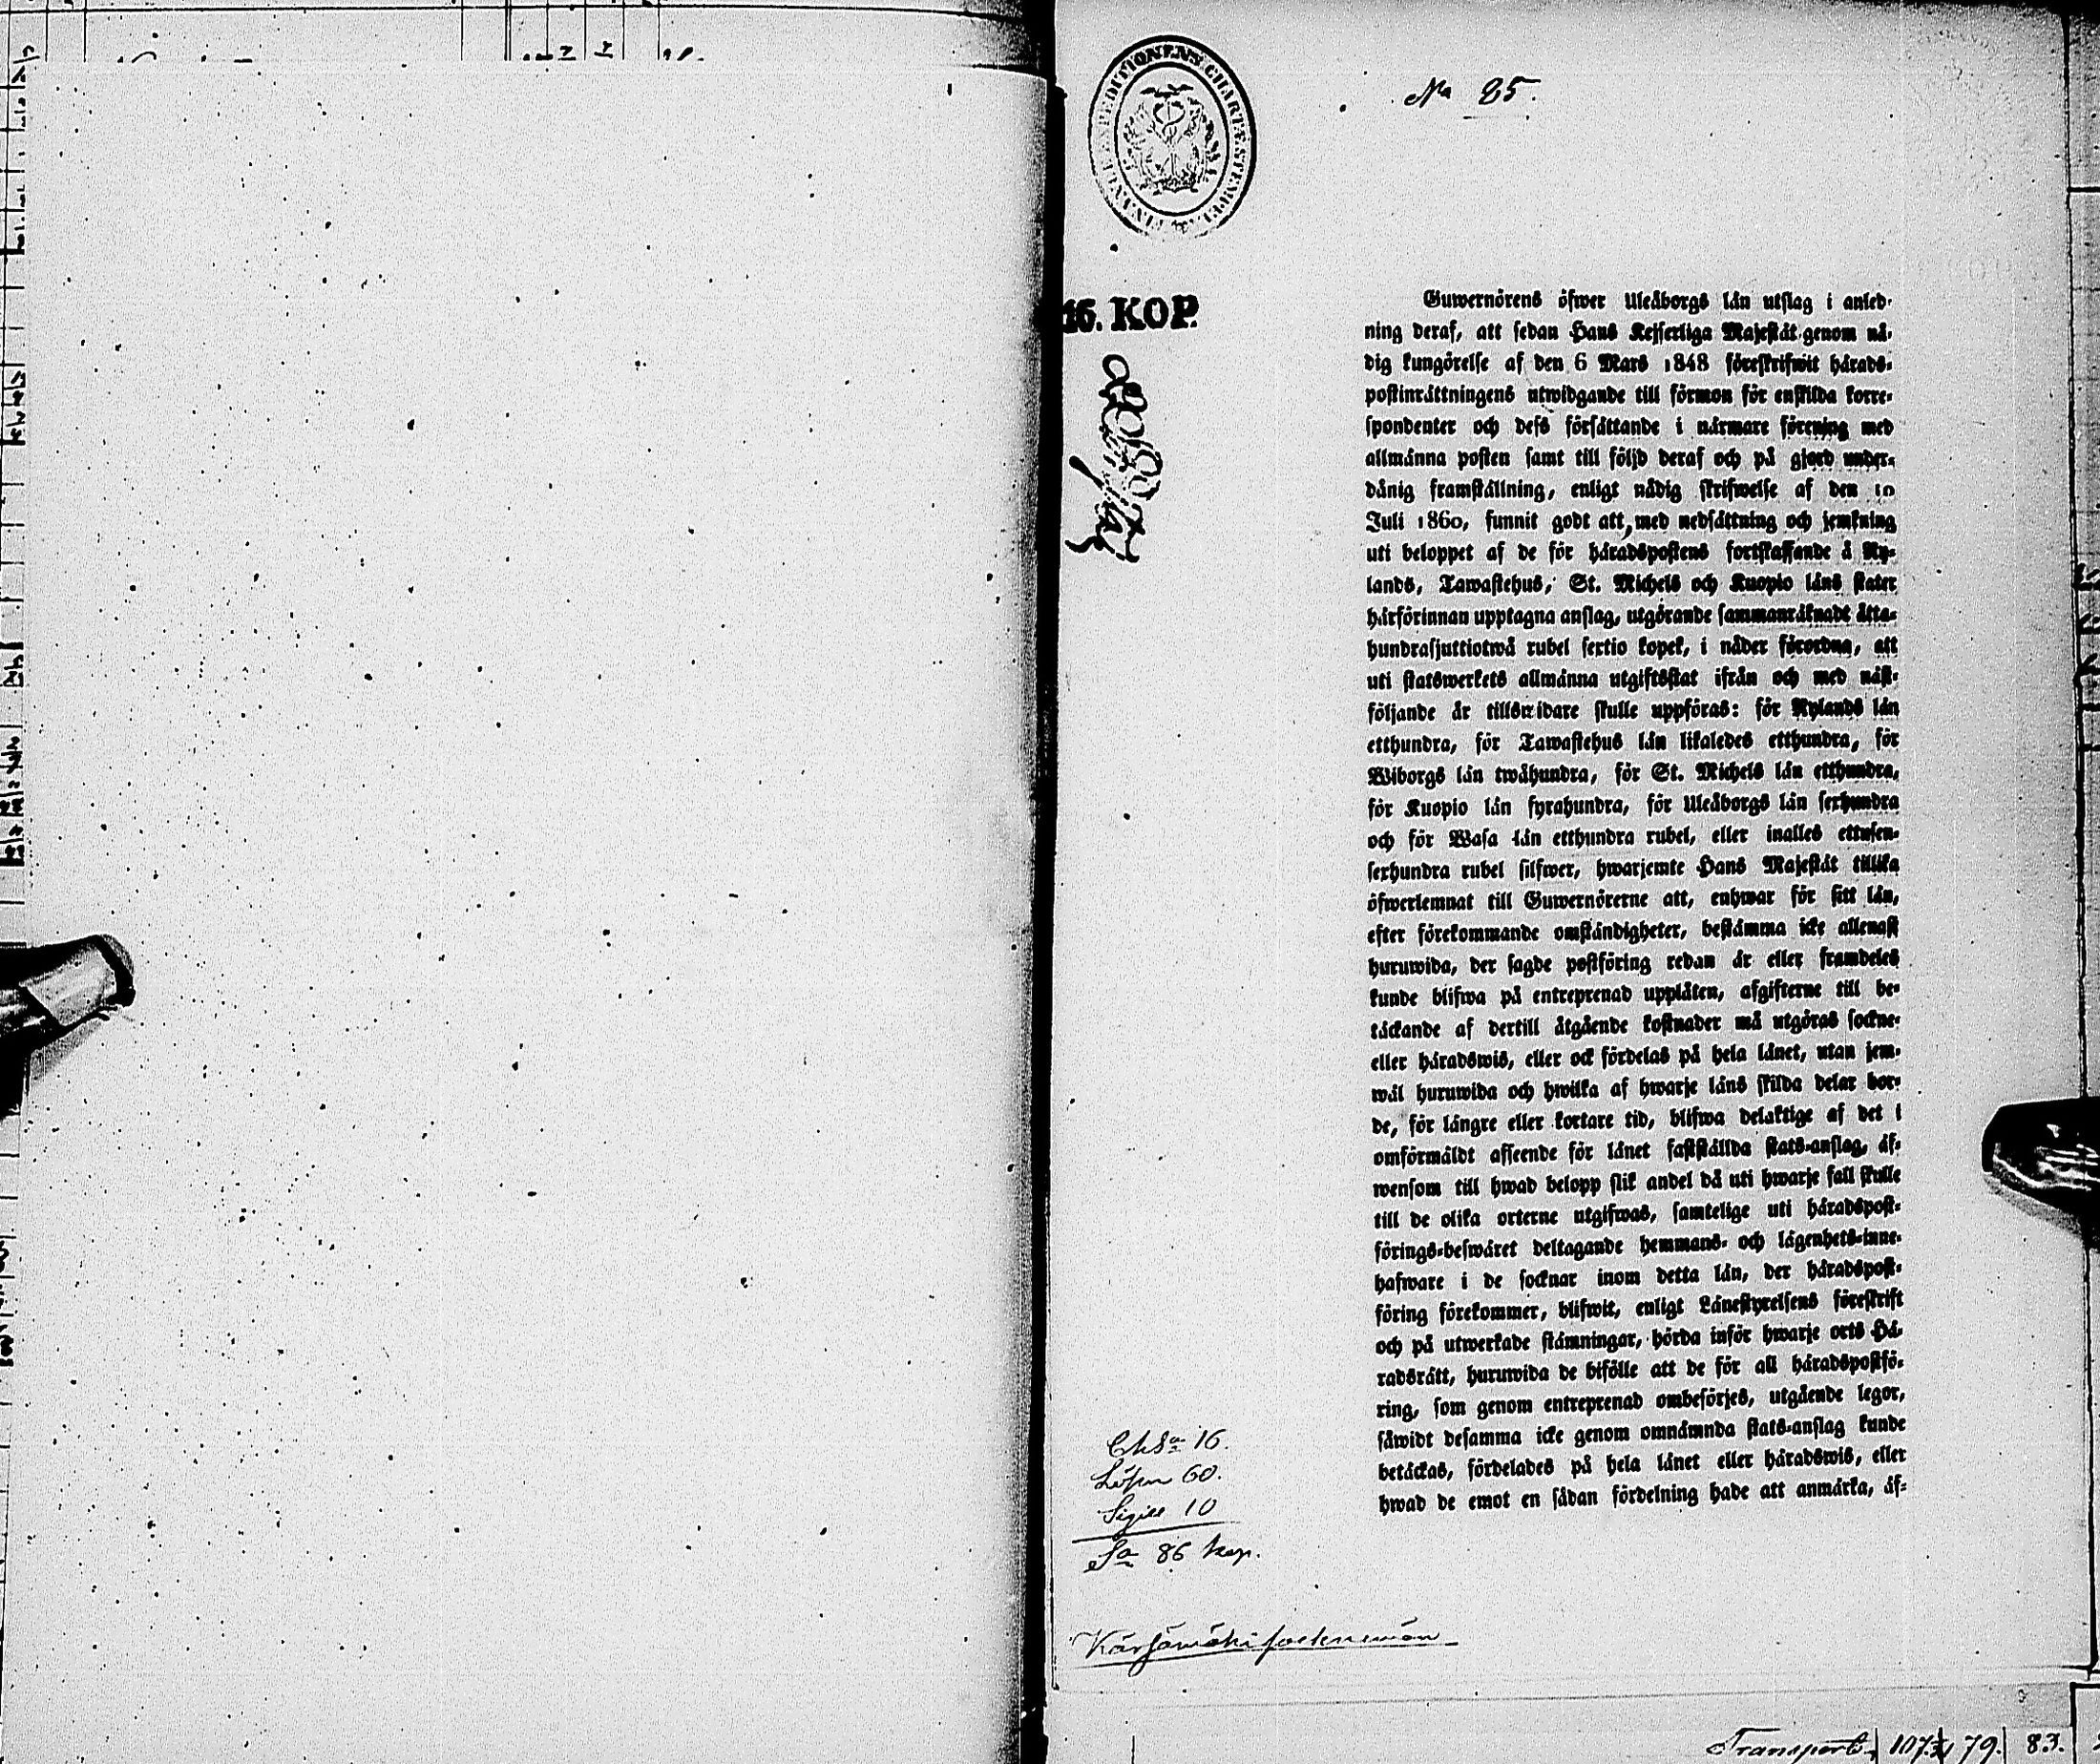 Nº 25.
16. KOP.
Guwernörens öfwer Uleåborgs län utslag i anled-
ning deraf, att sedan Hans Kejserliga Majestät genom nå-
dig kungörelse af den 6 Mars 1848 föreskrifwit härads-
postinrättningens utwidgande till förmon för enskilda korre-
spondenter och dess försättande i närmare förening med
allmänna posten samt till följd deraf och på gjord under-
dånig framställning, enligt nådig skrifwelse af den 10
Juli 1860, funnit godt att, med nedsättning och jemkning
uti beloppet af de för häradspostens fortskaffande å Ny-
lands, Tawastehus, St. Michels och Kuopio läns stater
härförinnan upptagna anslag, utgörande sammanräknadt åtta-
hundrasjuttiotwå rubel sextio kopek, i nåder förordna, att
uti statswerkets allmänna utgiftsstat ifrån och med näst-
följande år tillswidare skulle uppföras: för Nylands län
etthundra, för Tawastehus län likaledes etthundra, för
Wiborgs län twåhundra, för St. Michels län etthundra,
för Kuopio län fyrahundra, för Uleåborgs län sexhundra
och för Wasa län etthundra rubel, eller inalles ettusen-
sexhundra rubel silfwer, hwarjemte Hans Majestät tillika
öfwerlemnat till Guwernörerne att, enhwar för sitt län,
efter förekommande omständigheter, bestämma icke allenast
huruwida, der sagde postföring redan är eller framdeles
kunde blifwa på entreprenad upplåten, afgifterne till be-
täckande af dertill åtgående kostnader må utgöras sockne-
eller häradswis, eller ock fördelas på hela länet, utan jem-
wäl huruwida och hwilka af hwarje läns skilda delar bor-
de, för längre eller kortare tid, blifwa delaktige af det i
omförmäldt afseende för länet fastställda stats-anslag, äf-
wensom till hwad belopp slik andel då uti hwarje fall skulle
till de olika orterne utgifwas, samtelige uti häradspost-
förings-beswäret deltagande hemmans- och lägenhets-inne-
hafware i de socknar inom detta län, der häradspost-
föring förekommer, blifwit, enligt Länestyrelsens föreskrift
och på utwerkade stämningar, hörda inför hwarje orts Hä-
radsrätt, huruwida de bifölle att de för all häradspostfö-
ring, som genom entreprenad ombesörjes, utgående legor,
såwidt desamma icke genom omnämnda stats-anslag kunde
betäckas, fördelades på hela länet eller häradswis, eller
hwad de emot en sådan fördelning hade att anmärka, äf-
ChSa 16.
Lösen 60.
Sigill 10
Sa 86 kop.
Kärsämäki socknemän
Transport 79 83.